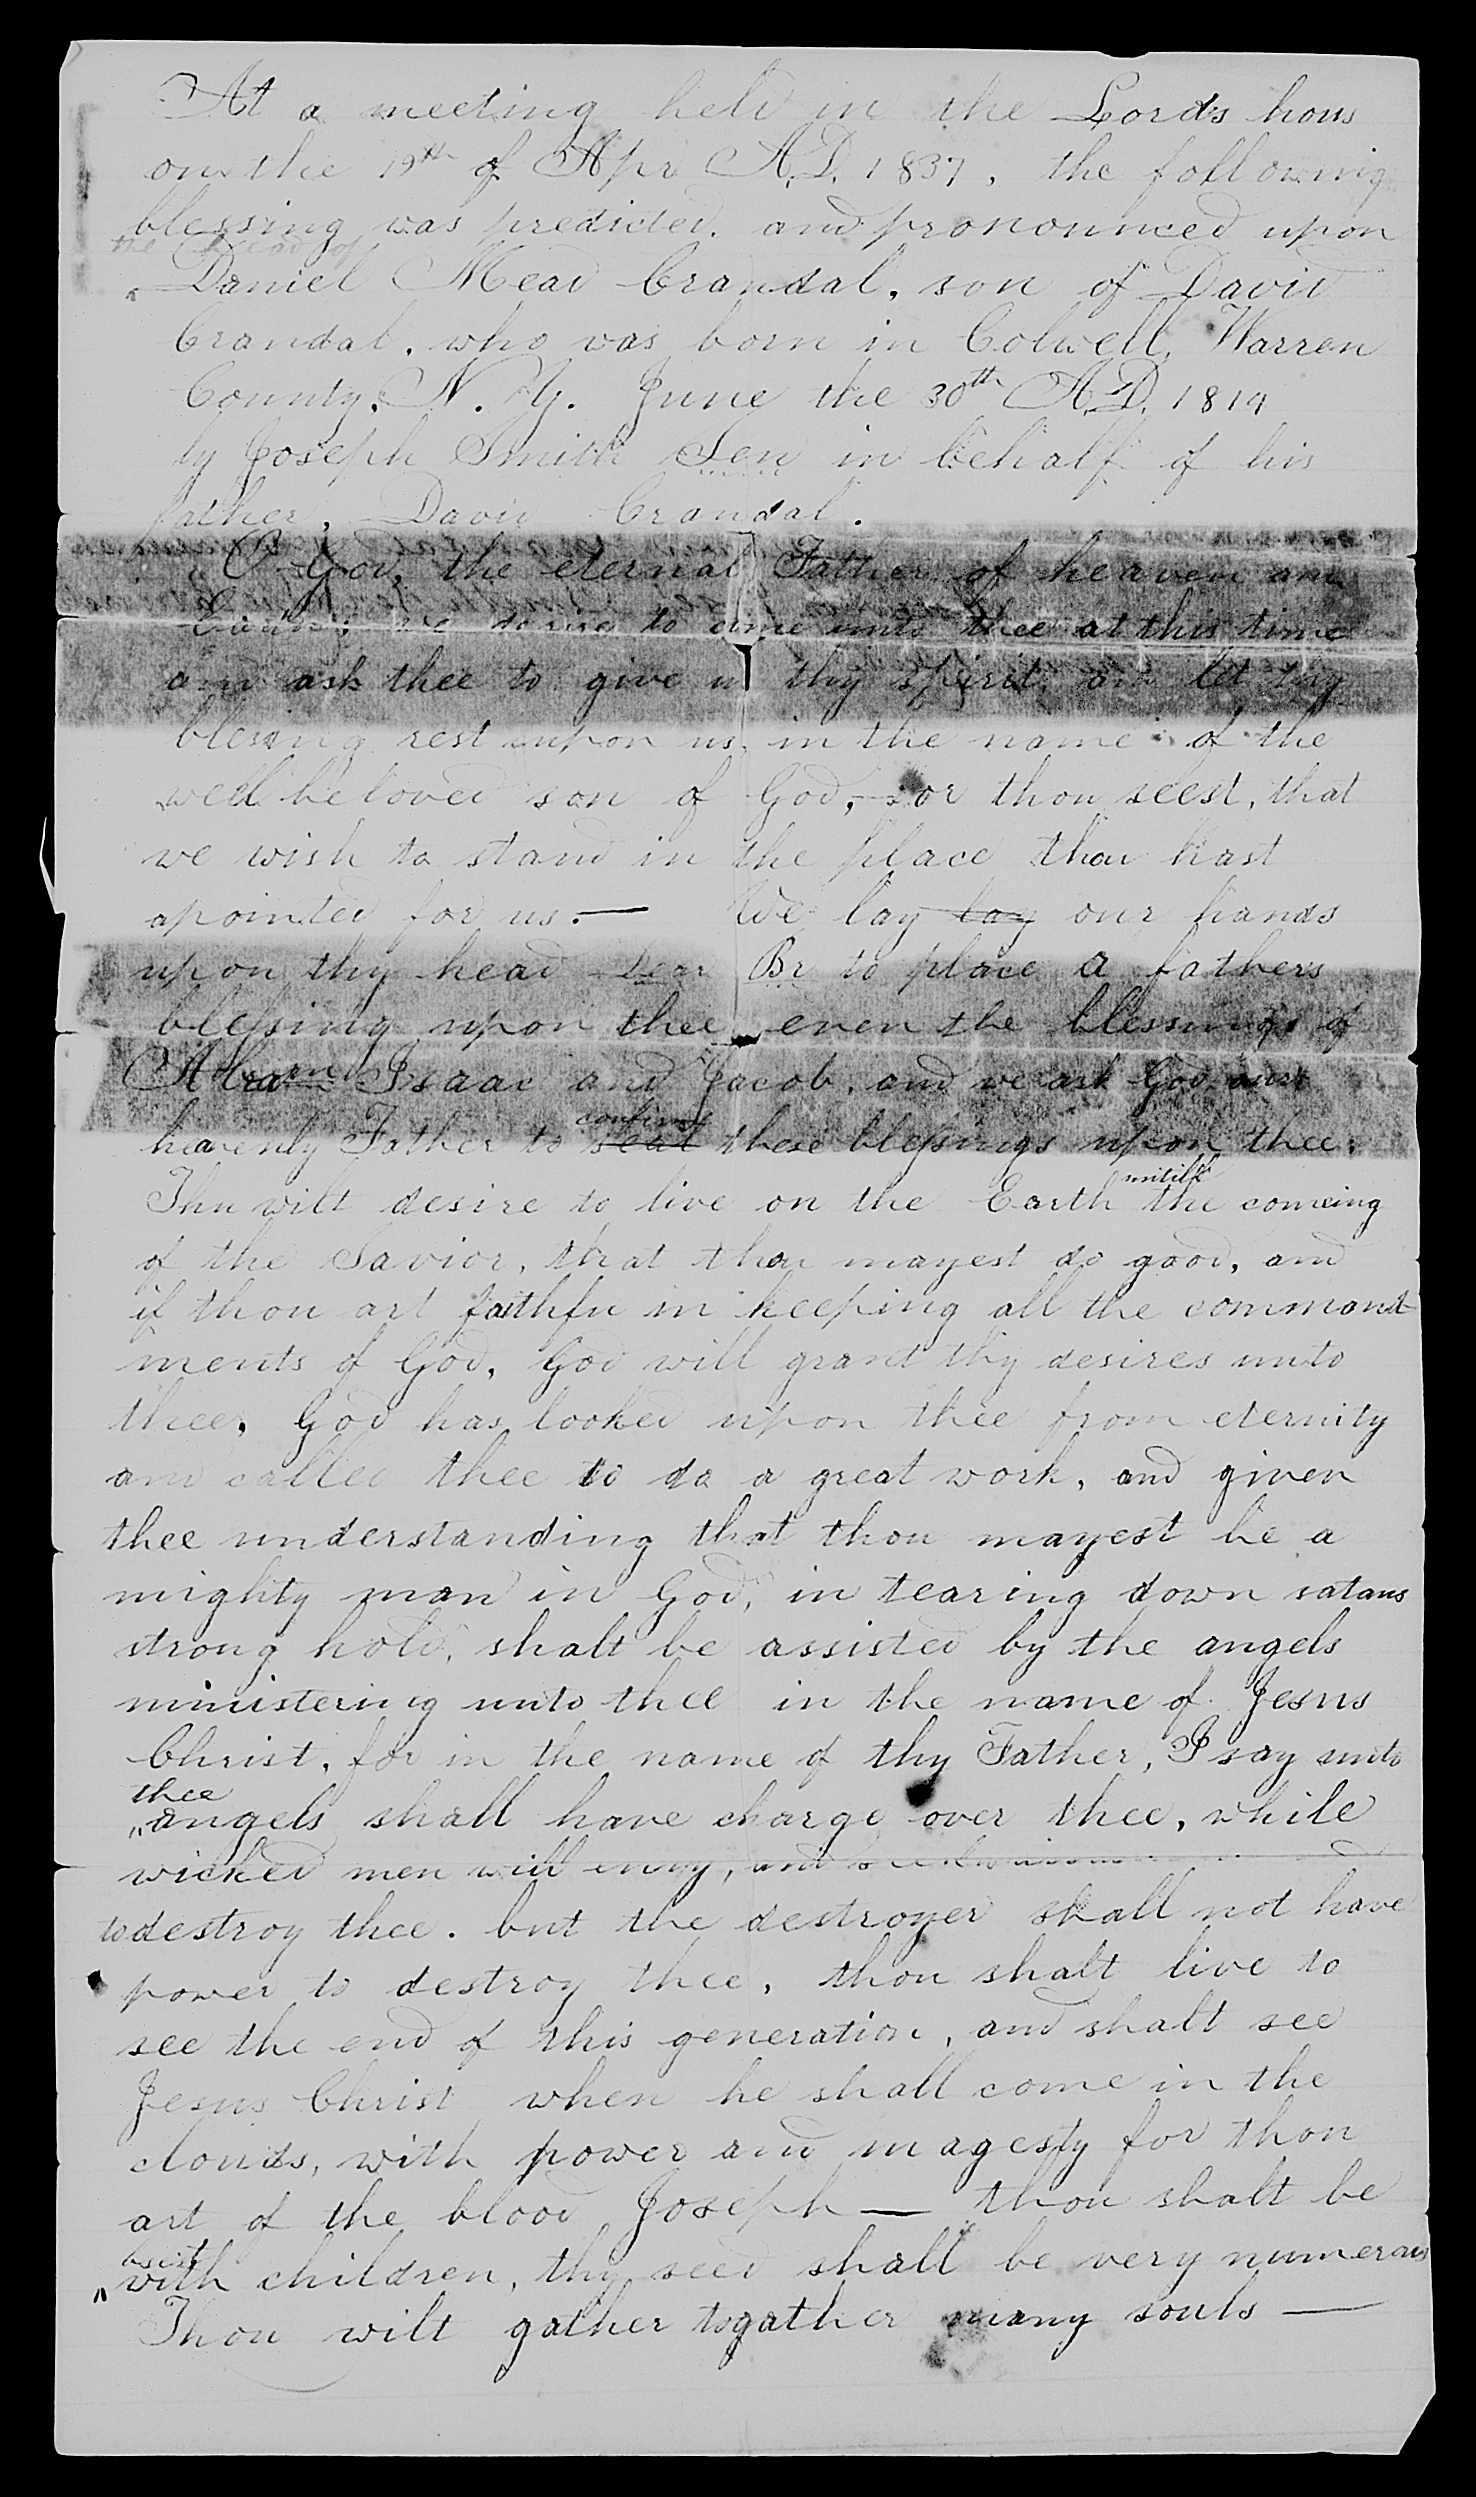 At a meeting held in the Lords hous
on the 19th of Apr A.D. 1837, the following
blessing was predicted. and pronounced upon
the head of
Daniel Mead Crandal, son of David
Crandal, who was born in Colwell, Warren
County, N. Y. June the 30th A.D. 1814
by Joseph Smith Sen in behalf of his
father, David Crandal.
O God, the eternal Father of heaven and
Earth; we desire to come unto thee at this time
and ask thee to give us thy spirit, and let thy
blessing rest upon us, in the name of the
well beloved son of God, for thou seest, that
we wish to stand in the place thou hast
apointed for us.— We lay lay our hands
upon thy head Dear Br to place a fathers
blessing upon thee even the blessings of
Abram Isaac and Jacob, and we ask God our
heavenly Father to seal these blessings upon thee.
confirm
untill
Thu wilt desire to live on the Earth the comeing
of the Savior, that thou mayest do good, and
if thou art faithfu in keeping all the command-
ments of God, God will grant thy desires unto
thee, God has looked upon thee from eternity
and called thee to do a great work, and given
thee understanding that thou mayest be a
mighty man in God, in tearing down satans
strong hold, shalt be assisted by the angels
ministering unto thee in the name of Jesus
Christ, for in the name of thy Father, I say unto
thee
angels shall have charge over thee, while
wicked men will envy, and
to destroy thee. but the destroyer shall not have
power to destroy thee, thou shalt live to
see the end of this generation, and shalt see
Jesus Christ when he shall come in the
clouds, with power and magesty for thou
art of the blood Joseph — thou shalt be
with children, thy seed shall be very numerous
Thou wilt gather togather many souls —